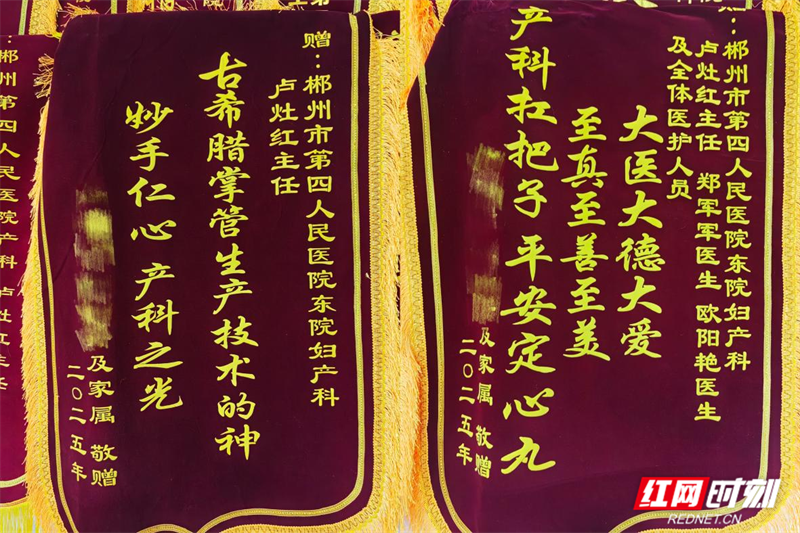 赠：郴州市第四人民医院东院妇产科
卢灶红主任
古希腊掌管生产技术的神
妙手仁心 产科之光
及家属 敬赠
二〇二五年
郴州市第四人民医院东院妇产科
卢灶红主任 郑军军医生 欧阳艳医生
及全体医护人员
大医大德大爱
至真至善至美
产科扛把子 平安定心丸
及家属 敬赠
二〇二五年
郴州第四人民医院产科 卢灶红主任
红网时刻
REDNET.CN